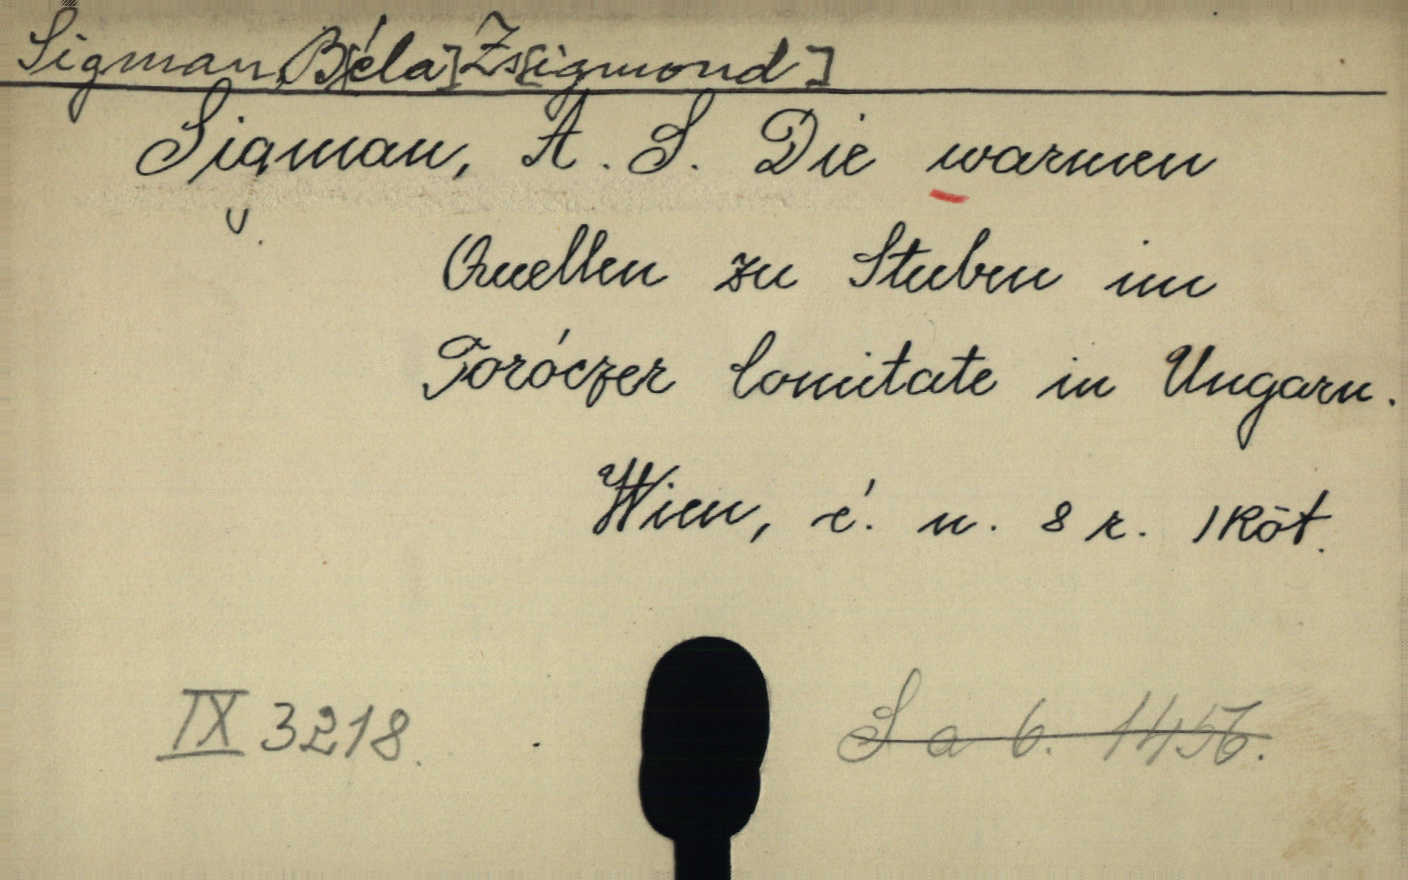 Sigman, B[éla] Zs[igmond]
Sigman, A. S. Die warmen
Quellen zu Stuben im
Toróczer Comitate in Ungarn.
Wien, é. n. 8 r. 1 Köt.
IX 3218.
S a b. 1456.